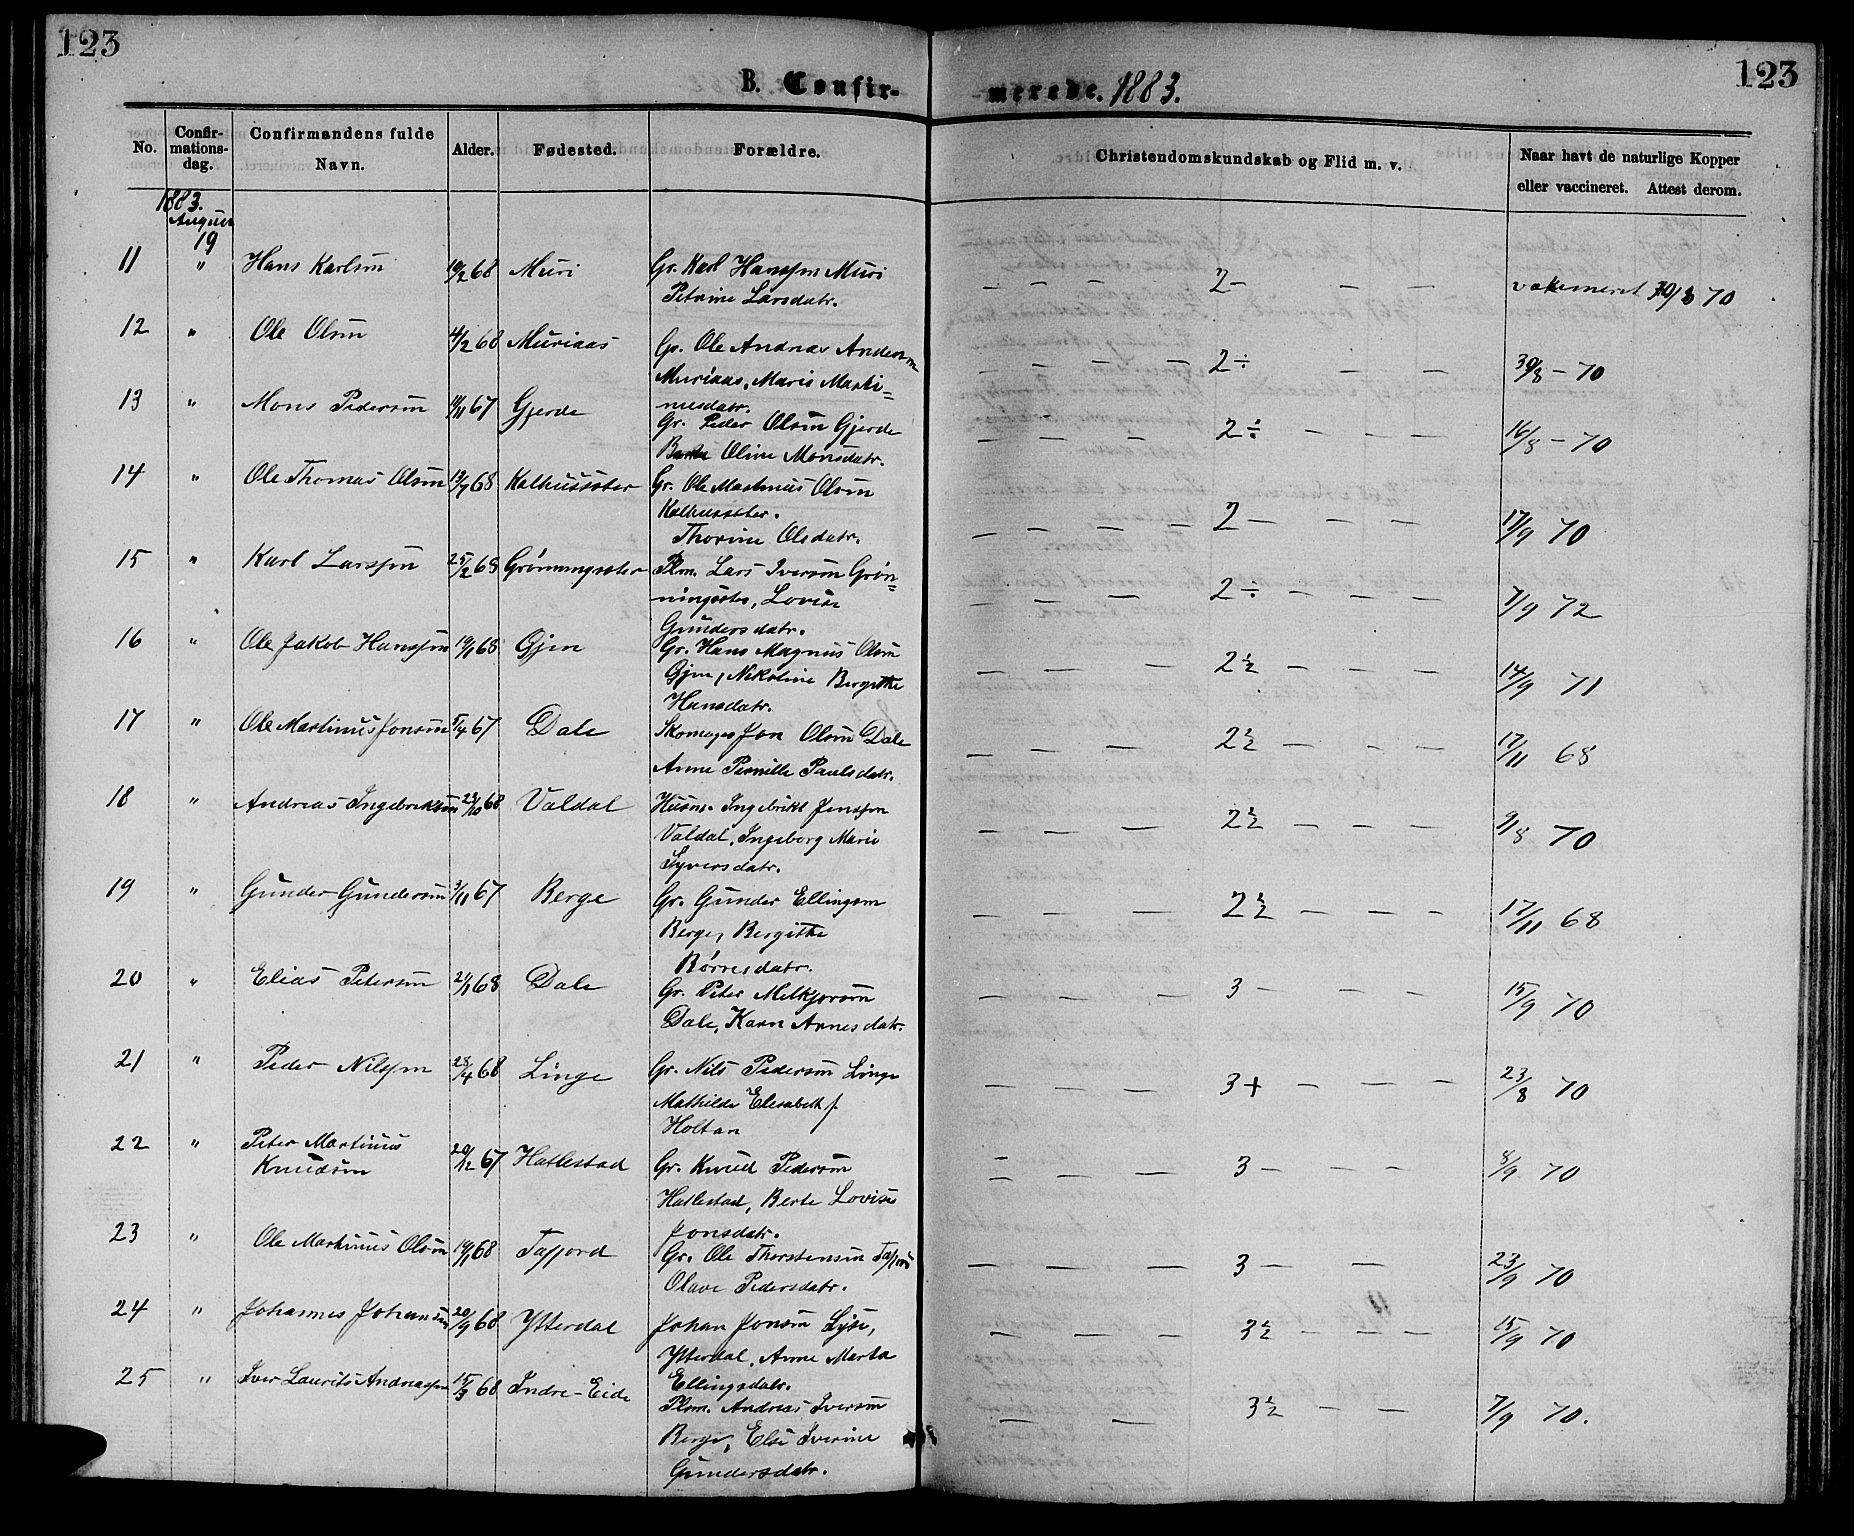 123
123
B. Confir-
merede. 1883.
No.
Confir-
mations-
dag.
Confirmandens fulde
Navn.
Alder.
Fødested.
Forældre.
Christendomskundskab og Flid m. v.
Naar havt de naturlige Kopper
eller vaccineret. Attest derom.
1883.
August
19
11 " Hans Karlsen 68 Muri Gr. Karl Hanssen Muri
Petrine Larsdatr.
— — — — 2- — — 70
12 " Ole Olsen 4/2 68 Muriaas Gr. Ole Andreas Andersen
Muriaas, Maris Marti=
nusdatr.
— — — — 2÷ — — 30/8 - 70
13 " Mons Pedersen 67 Gjerde Gr. Peder Olsen Gjerde
Berte Oline Monsdatr.
— — — 2÷ — — — 16/8 - 70
14 " Ole Thomas Olsen 68 Kalhussæter Gr. Ole Martinus Olsen
Kalhussæter.
Thorine Olsdatr.
— — — — 2- — — 17/9 70
15 " Karl Larssen 25/2 68 Grønningsæter Plm. Lars Iversen Grøn=
ningsæter, Lovise
Gundersdatr.
— — — — 2÷ — — — 7/9 72
16 " Ole Jakob Hanssen 68 Gjen Gr. Hans Magnus Olsen
Gjen, Nikoline Bergitte
Hansdatr.
— — — 2½ — — — 14/9 71
17 " Ole Martinus Jonsen 5/4 67 Dale Skomager Jon Olsen Dale
Anne Pernille Paulsdatr.
— — — 2½ — — — 17/11 68
18 " Andreas Ingebriktsen 23/10 68 Valdal Husm. Ingebrikt Jenssen
Valdal, Ingeborg Marie
Syversdatr.
— — — 2½ — — — 9/8 70
19 " Gunder Gundersen 3/11 67 Berge Gr. Gunder Ellingsen
Berge, Bergitte
Børresdatr.
— — — — 2½ — — — 17/11 68
20 " Elias Petersen 68 Dale Gr. Peter Melkjorsen
Dale, Karn Arnesdatr.
— — — — 3- — — — 15/9 70
21 " Peder Nilssen 28/4 68 Linge Gr. Nils Pedersen Linge
Mathilde Elisabeth f.
Holtan
— — — — 3+ — — — 23/8 70
22 " Peter Martinus
Knudsen 20/12 67 Hatlestad Gr. Knud Pedersen
Hatlestad, Berte Lovise
Jonsdatr.
— — — — 3- — — — 8/9 70
23 " Ole Martinus Olsen 68 Tafjord Gr. Ole Thorstensen Tafjord
Olave Pedersdatr.
— — — — 3- — — 23/9 70
24 " Johannes Johansen 20/9 68 Ytterdal Johan Jonsen Lyse,
Ytterdal, Anne Marta
Ellingsdatr.
— — — 3½ — — — 15/9 70
25 " Iver Laurits Andreassen 68 Indre-Eide Plm. Andreas Iversen
Berge, Else Iverine
Gundersdatr.
— — — 3½ — — 7/9 70.